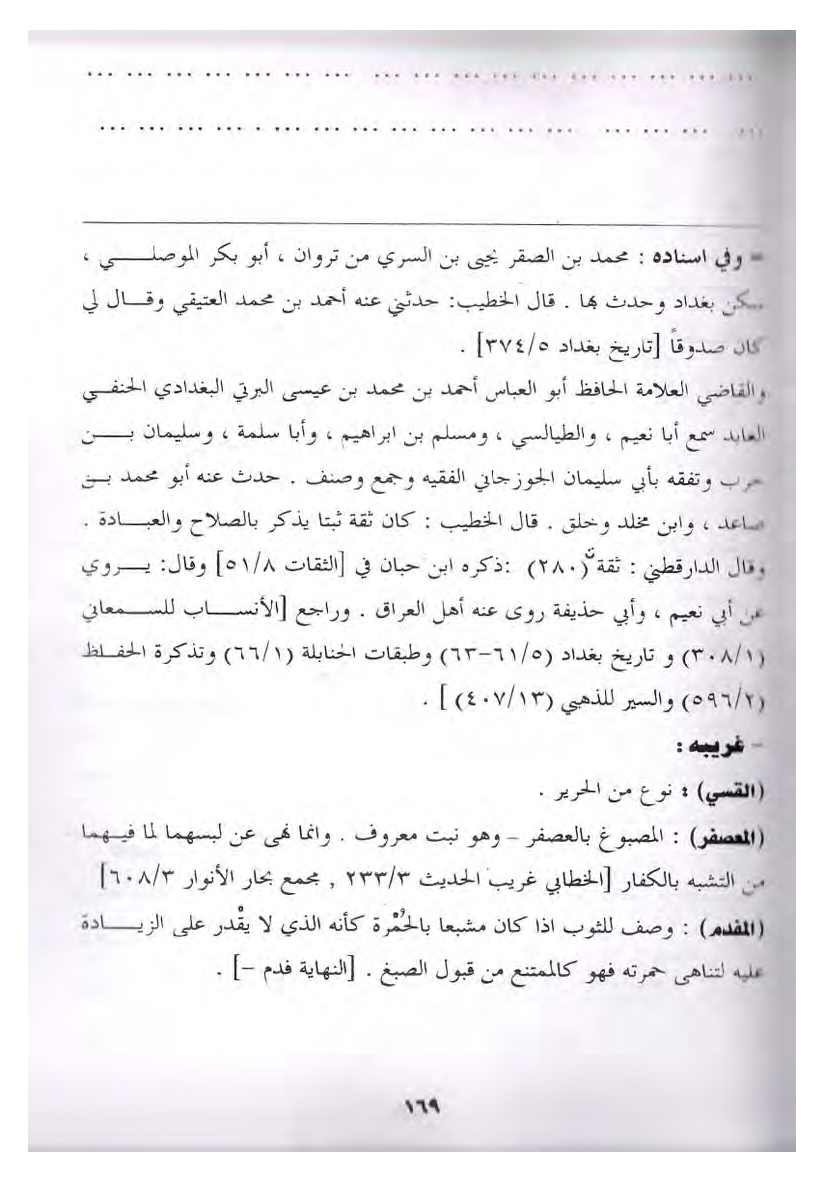 ... ... ... ... ... ... ... ... ... ... ... ... ... ... ... ... ...
... ... ... ... ... ... ... ... ... ... ... ... . ... ... ... ... ...
= وفي اسناده : محمد بن الصقر يحيى بن السري من تروان ، أبو بكر الموصلــــي ،
سكن بغداد وحدث بها . قال الخطيب: حدثني عنه أحمد بن محمد العتيقي وقـــال لي
كان صدوقاً [تاريخ بغداد ٣٧٤/٥] .
والقاضي العلامة الحافظ أبو العباس أحمد بن محمد بن عيسى البرتي البغدادي الحنفـــي
العابد سمع أبا نعيم ، والطيالسي ، ومسلم بن ابراهيم ، وأبا سلمة ، وسليمان بـــن
حرب وتفقه بأبي سليمان الجوزجاني الفقيه وجمع وصنف . حدث عنه أبو محمد بـن
صاعد ، وابن مخلد وخلق . قال الخطيب : كان ثقة ثبتا يذكر بالصلاح والعبـــادة .
وقال الدارقطني : ثقة (٢٨٠) :ذكره ابن حبان في [الثقات ٥١/٨] وقال: يـــروي
عن أبي نعيم ، وأبي حذيفة روى عنه أهل العراق . وراجع [الأنســـاب للســمعاني
(٣٠٨/١) و تاريخ بغداد (٦١/٥-٦٣) وطبقات الحنابلة (٦٦/١) وتذكرة الحفـاظ
(٥٩٦/٢) والسير للذهبي (٤٠٧/١٣) ] .
- غريبه :
(القسي) : نوع من الحرير .
(المعصفر) : المصبوغ بالعصفر – وهو نبت معروف . وانما نهى عن لبسهما لما فيـهما
من التشبه بالكفار [الخطابي غريب الحديث ٢٣٣/٣ , مجمع بحار الأنوار ٦٠٨/٣]
(المفدم) : وصف للثوب اذا كان مشبعا بالحُمْرة كأنه الذي لا يقْدر على الزيـــادة
عليه لتناهى حمرته فهو كالممتنع من قبول الصبغ . [النهاية فدم –] .
١٦٩